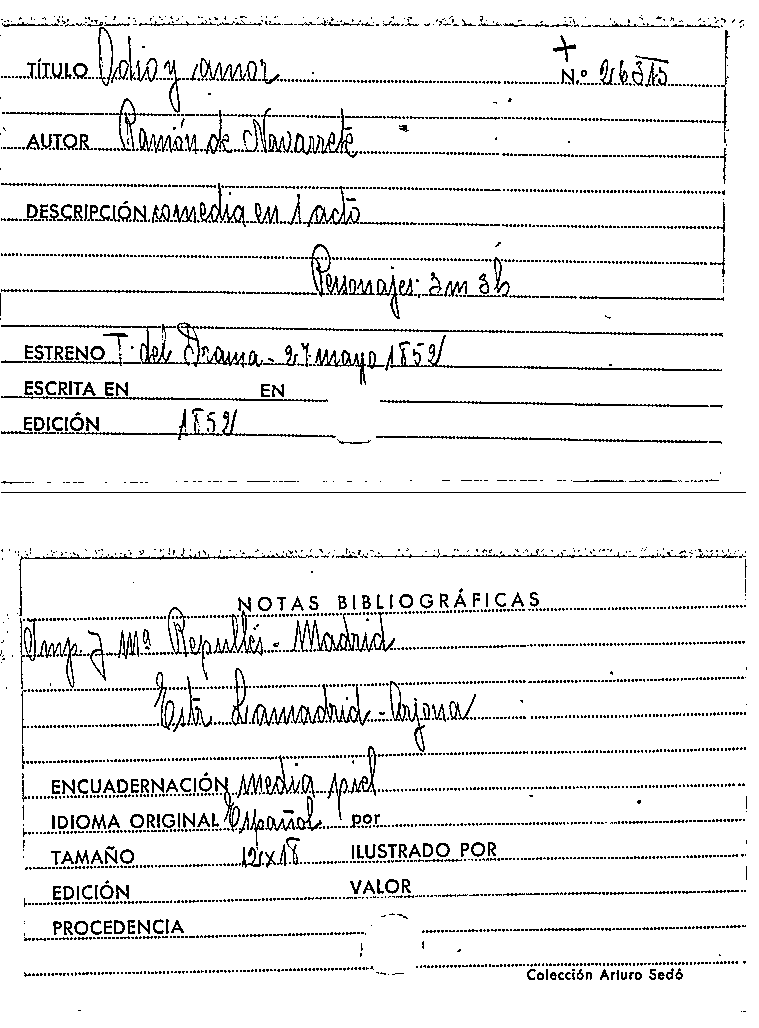 +
TÍTULO Odio y amor N.º 26315
AUTOR Ramón de Navarrete
DESCRIPCIÓN comedia en 1 acto
Personajes: 3m 3h
ESTRENO T. del Drama - 27 mayo 1852
ESCRITA EN EN
EDICIÓN 1852
NOTAS BIBLIOGRÁFICAS
Imp. J Mª Repullés - Madrid
Estr Lamadrid - Arjona
ENCUADERNACIÓN media piel
IDIOMA ORIGINAL Español por
TAMAÑO 12x18 ILUSTRADO POR
EDICIÓN VALOR
PROCEDENCIA
Colección Arturo Sedó